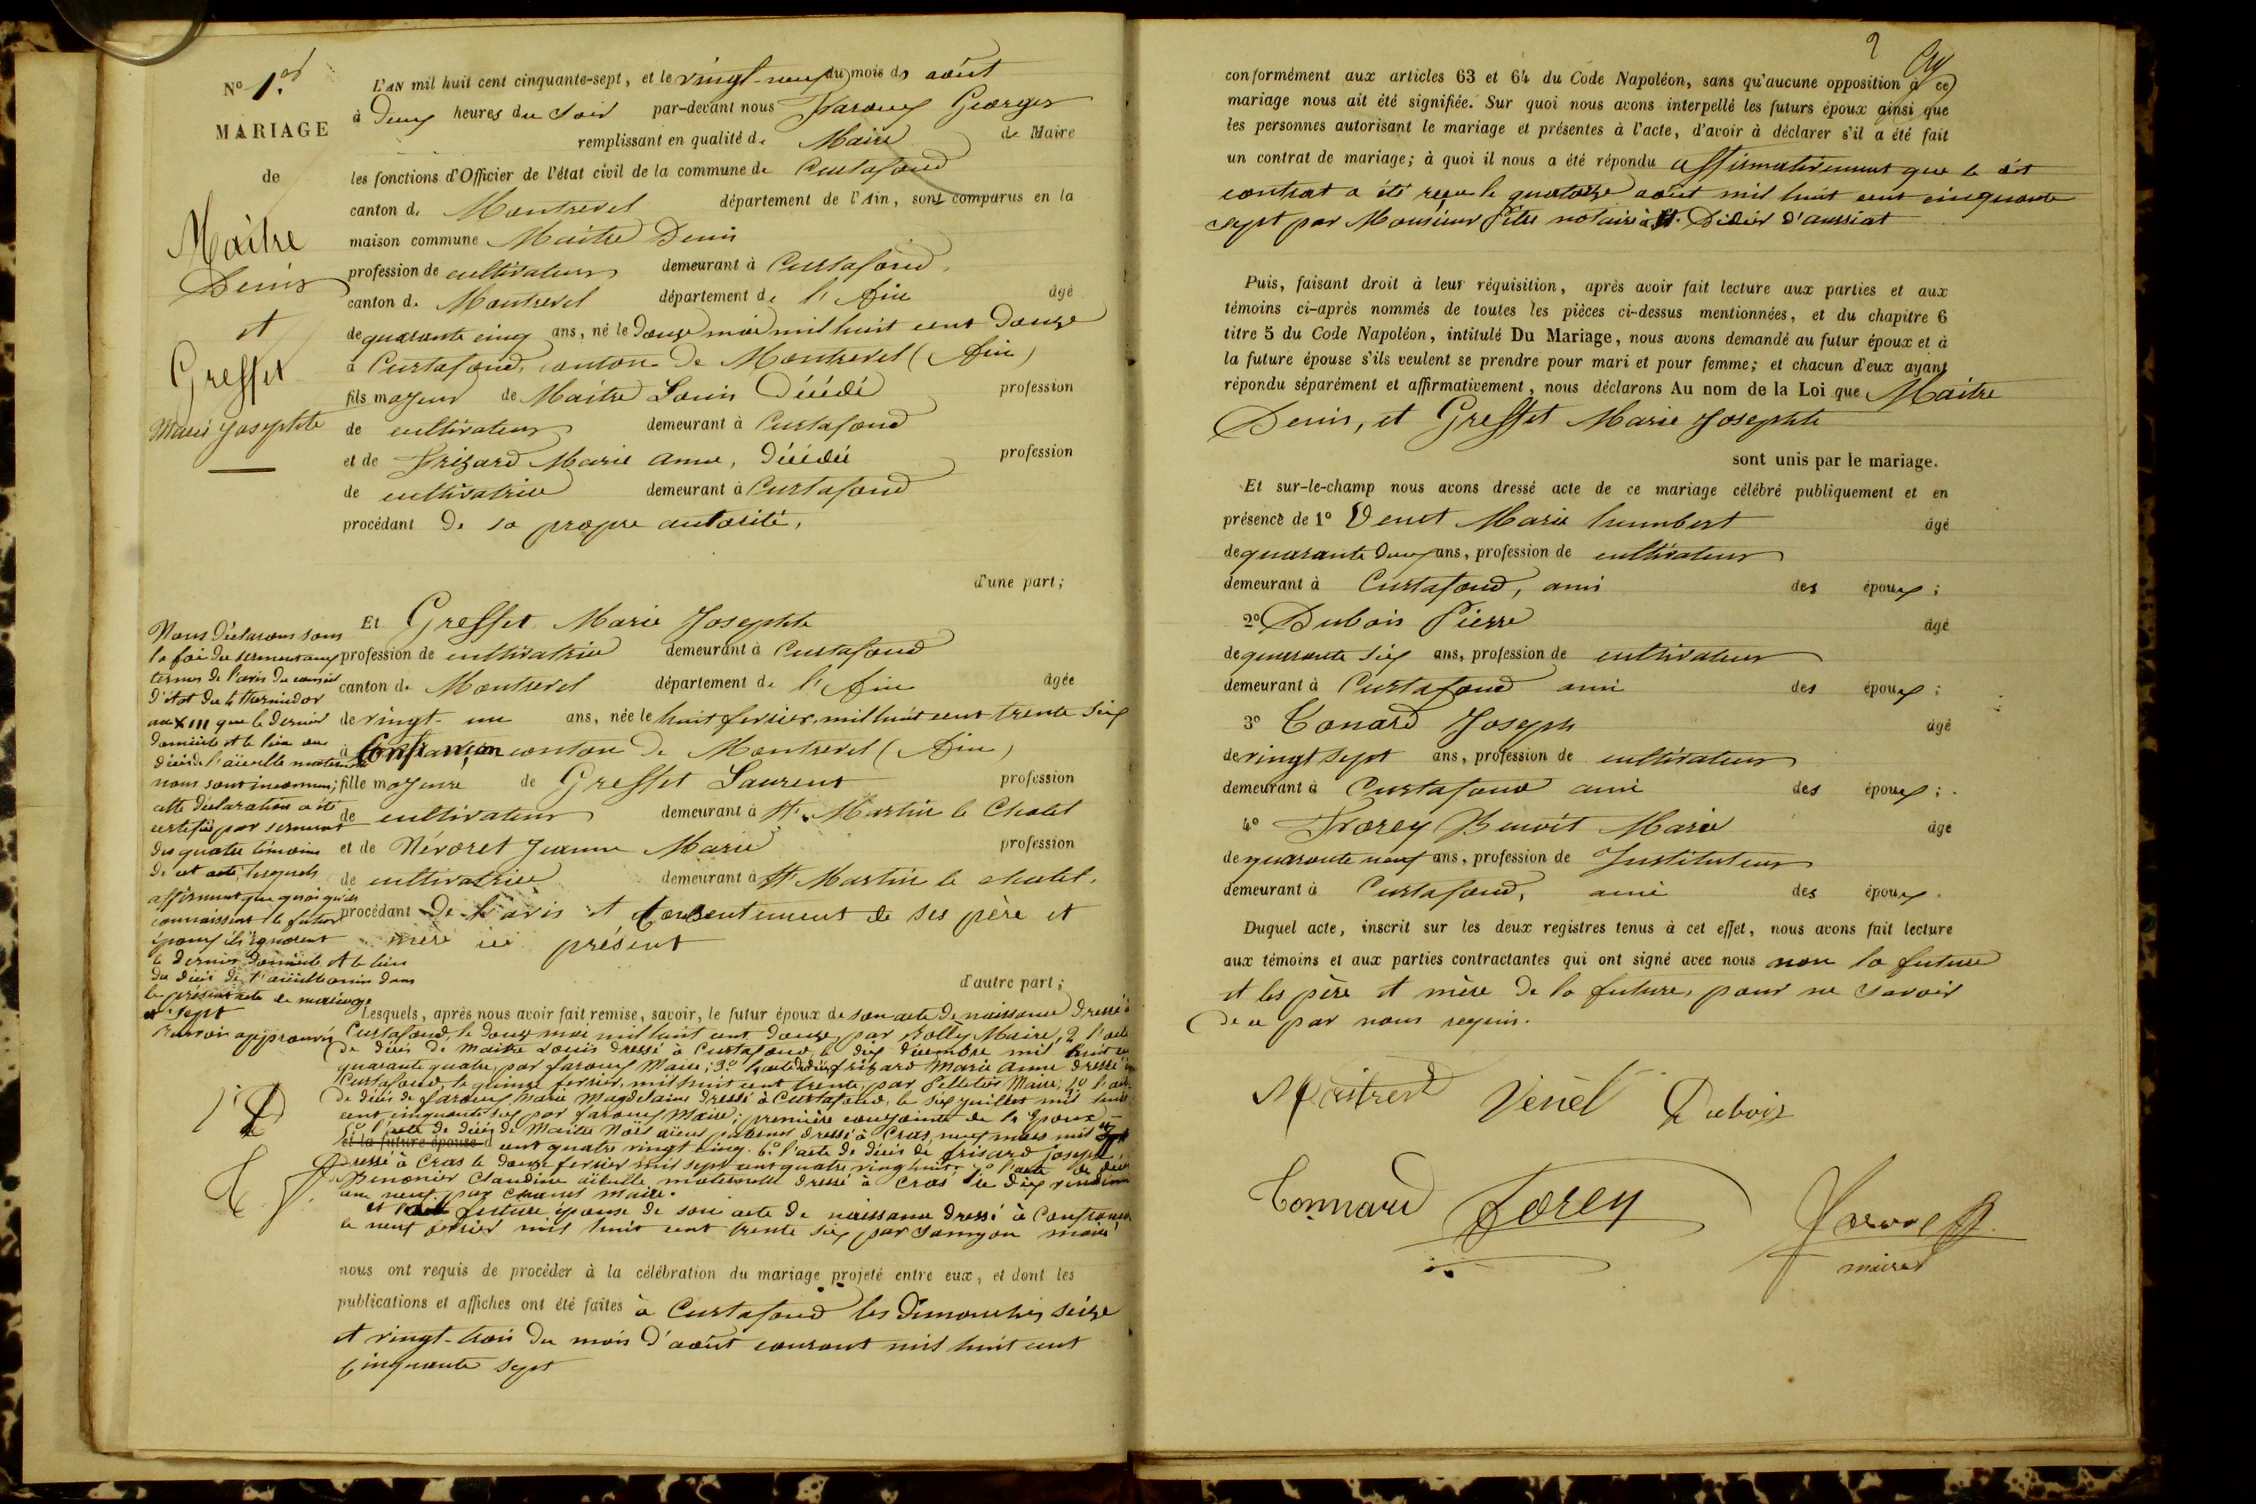 No 1er
MARIAGE
de
Maitre
Denis
et
Greffet
Marie Josephte
L'AN mil huit cent cinquante-sept, et le vingt-neuf du mois de août
à Deux heures du soir par-devant nous Faroux Georges
remplissant en qualité de Maire de Maire
les fonctions d'Officier de l'état civil de la commune de Curtafond
canton de Montrevel département de l'Ain, sont comparus en la
maison commune Maitre Denis
profession de cultivateur demeurant à Curtafond,
canton de Montrevel département de l'Ain âgé
de quarante cinq ans, né le Douze mai mil huit cent Douze
à Curtafond, canton de Montrevel (Ain)
fils majeur de Maitre Louis Décédé profession
de cultivateur demeurant à Curtafond
et de Frizard Marie Anne, Décédée profession
de cultivatrice demeurant à Curtafond
procédant De sa propre autorité,
d'une part;
Et Greffet Marie Josephte
profession de cultivatrice demeurant à Curtafond
canton de Montrevel département de l'Ain âgée
de vingt-un ans, née le huit fevrier, mil huit cent trente six
à Confrançon canton de Montrevel (Ain)
fille majeure de Greffet Laurent profession
de cultivateur demeurant à St. Martin le Chatel
et de Névoret Jeanne Marie profession
de cultivatrice demeurant à St Martin le chatel.
procédant De l'avis et consentement de ses père et
mère ici présent
d'autre part;
Nous Déclarons sous
la foi du serment aux
termes de l'avis du conseil
d'état du 4 thermidor
an XIII que le dernier
domicile et le lieu du
décès de l'aïeulle maternelle
nous sont inconnus;
cette déclaration a été
certifiée par serment
des quatre témoins
de cet acte, lesquels
affirment que quoiqu'ils
connaissent le futur
époux ils ignorent
le dernier domicile et le lieu
du décès de l'aïeulle omis dans
le présent acte de mariage
et sept
Renvoi approuvé
Lesquels, après nous avoir fait remise, savoir, le futur époux de son acte de naissance dressé à
Curtafond, le douze mai mil huit cent douze, par Bolley Maire, 2º l'acte
de décès de Maitre Louis dressé à Curtafond, le dix décembre mil huit cent
quarante quatre, par Faroux Maire; 3º l'acte de décès frizard Marie Anne dressé à
Curtafond, le quinze fevrier, mil huit cent trente, par Pelletier Maire; 4º l'acte
de décès de Faroux Marie Magdelaine dressé à Curtafond, le six juillet mil huit
cent cinquante six par Faroux Maire; première conjointe de l'époux
5º l'acte de décès de Maitre Noël aïeul paternel dressé à Cras, neuf mars mil sept
et la future épouse d cent quatre vingt cinq. 6º l'acte de décès de frisard Joseph,
dressé à Cras le douze fevrier mil sept cent quatre vingt huit. 7º l'acte de décès
Claudine aïeulle maternelle dressé à Cras le dix
an neuf par Maire.
et la future épouse de son acte de naissance dressé à Confrançon
le neuf fevrier mil huit cent trente six par maire,
nous ont requis de procéder à la célébration du mariage projeté entre eux, et dont les
publications et affiches ont été faites à Curtafond les Dimanches seize
et vingt-trois du mois d'août courant mil huit cent
cinquante sept
conformément aux articles 63 et 64 du Code Napoléon, sans qu'aucune opposition à ce
mariage nous ait été signifiée. Sur quoi nous avons interpellé les futurs époux ainsi que
les personnes autorisant le mariage et présentes à l'acte, d'avoir à déclarer s'il a été fait
un contrat de mariage; à quoi il nous a été répondu affirmativement que le dit
contrat a été reçu le quatorze août mil huit cent cinquante
sept par Monsieur notaire à St. Didier d'aussiat
Puis, faisant droit à leur réquisition, après avoir fait lecture aux parties et aux
témoins ci-après nommés de toutes les pièces ci-dessus mentionnées, et du chapitre 6
titre 5 du Code Napoléon, intitulé Du Mariage, nous avons demandé au futur époux et à
la future épouse s'ils veulent se prendre pour mari et pour femme; et chacun d'eux ayant
répondu séparément et affirmativement, nous déclarons Au nom de la Loi que Maitre
Denis, et Greffet Marie Josephte
sont unis par le mariage.
Et sur-le-champ nous avons dressé acte de ce mariage célébré publiquement et en
présence de 1º Venet Marie humbert âgé
de quarante deux ans, profession de cultivateur
demeurant à Curtafond, ami des époux;
2º Dubois Pierre âgé
de quarante six ans, profession de cultivateur
demeurant à Curtafond ami des époux;
3º Tonard Joseph âgé
de vingt sept ans, profession de cultivateur
demeurant à Curtafond ami des époux;
4º Frorey Benoit Marie âgé
de quarante neuf ans, profession de Instituteur
demeurant à Curtafond, ami des époux.
Duquel acte, inscrit sur les deux registres tenus à cet effet, nous avons fait lecture
aux témoins et aux parties contractantes qui ont signé avec nous non la future
et les père et mère de la future, pour ne savoir
de ce par nous requis.
Maitre d Venel Dubois
Tonnard Forey Faroux g.
maire